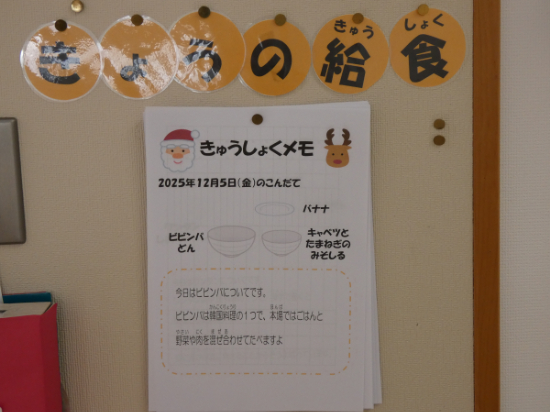 きょうの給食
きゅう
しょく
きゅうしょくメモ
2025年12月5日(金)のこんだて
バナナ
ビビンバ
どん
キャベツと
たまねぎの
みそしる
今日はビビンバについてです。
ビビンバは韓国料理の1つで、本場ではごはんと
野菜や肉を混ぜ合わせてたべますよ